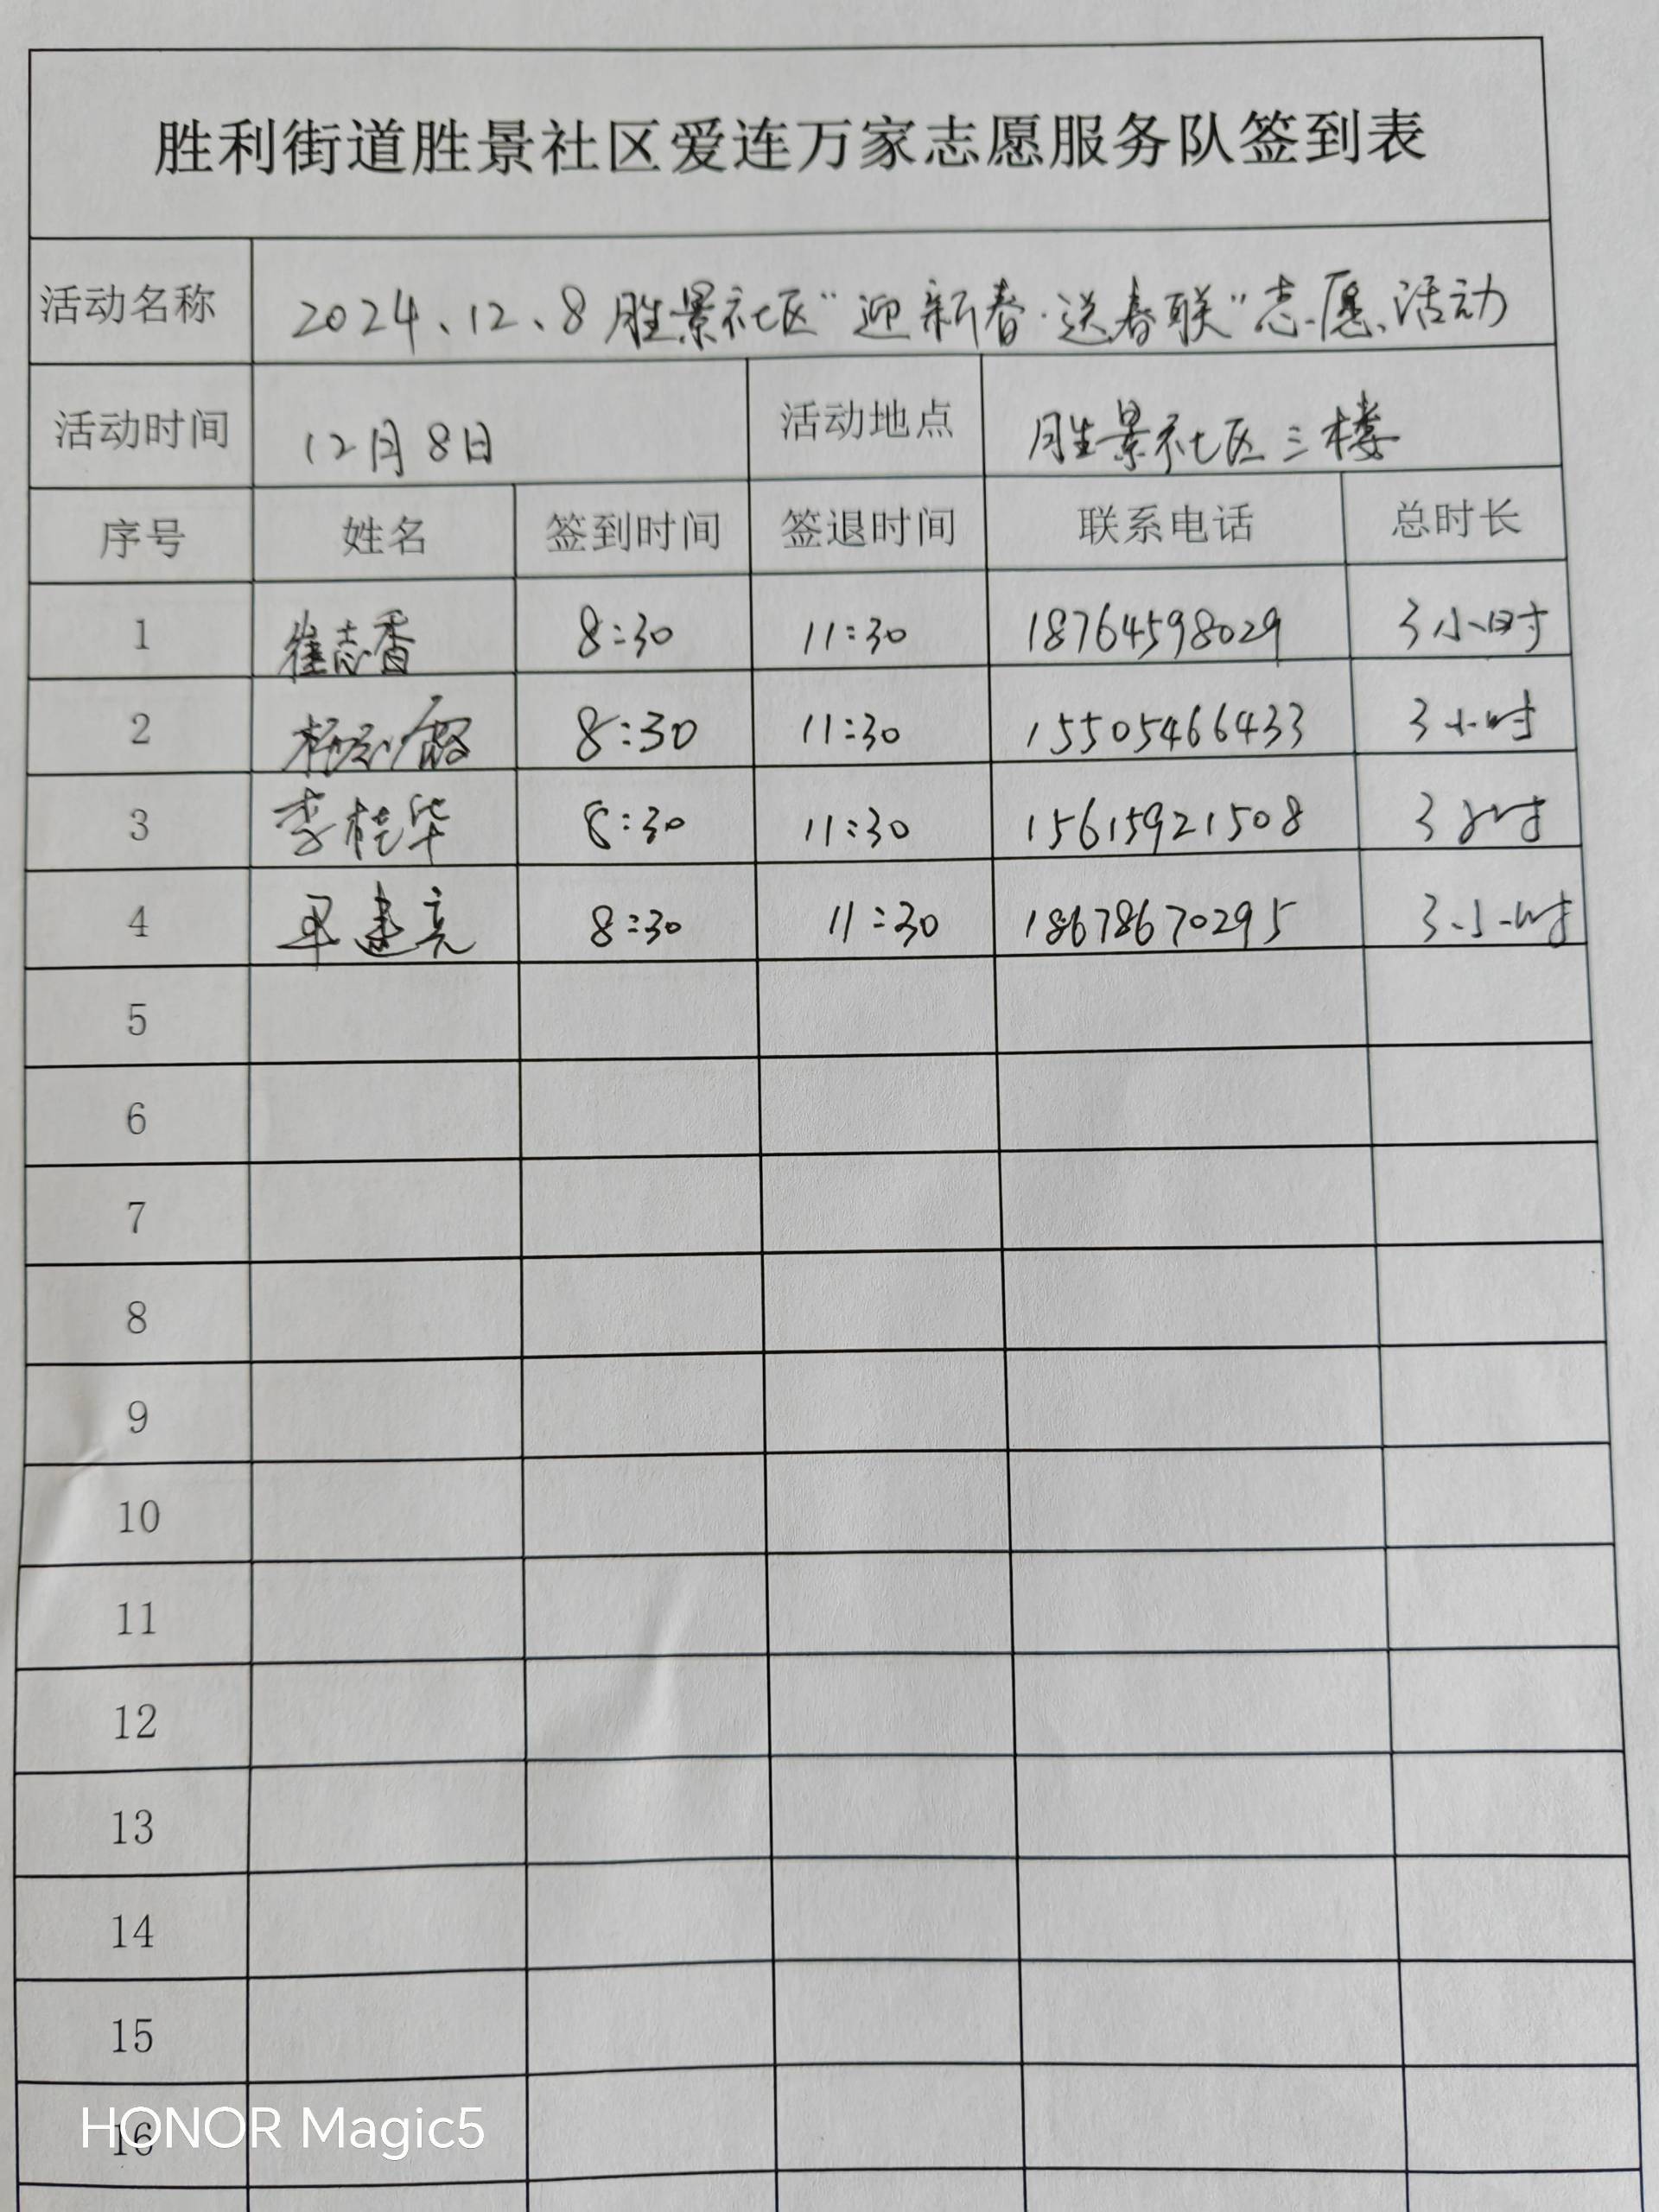 胜利街道胜景社区爱连万家志愿服务队签到表
活动名称 2024、12、8胜景社区“迎新春·送春联”志愿活动
活动时间 12月8日 活动地点 胜景社区三楼
序号 姓名 签到时间 签退时间 联系电话 总时长
1 崔志香 8:30 11:30 18764598029 3小时
2 8:30 11:30 15505466433 3小时
3 李桂华 8:30 11:30 15615921508 3小时
4 建亮 8:30 11:30 18678670295 3小时
5
6
7
8
9
10
11
12
13
14
15
16
HONOR Magic5